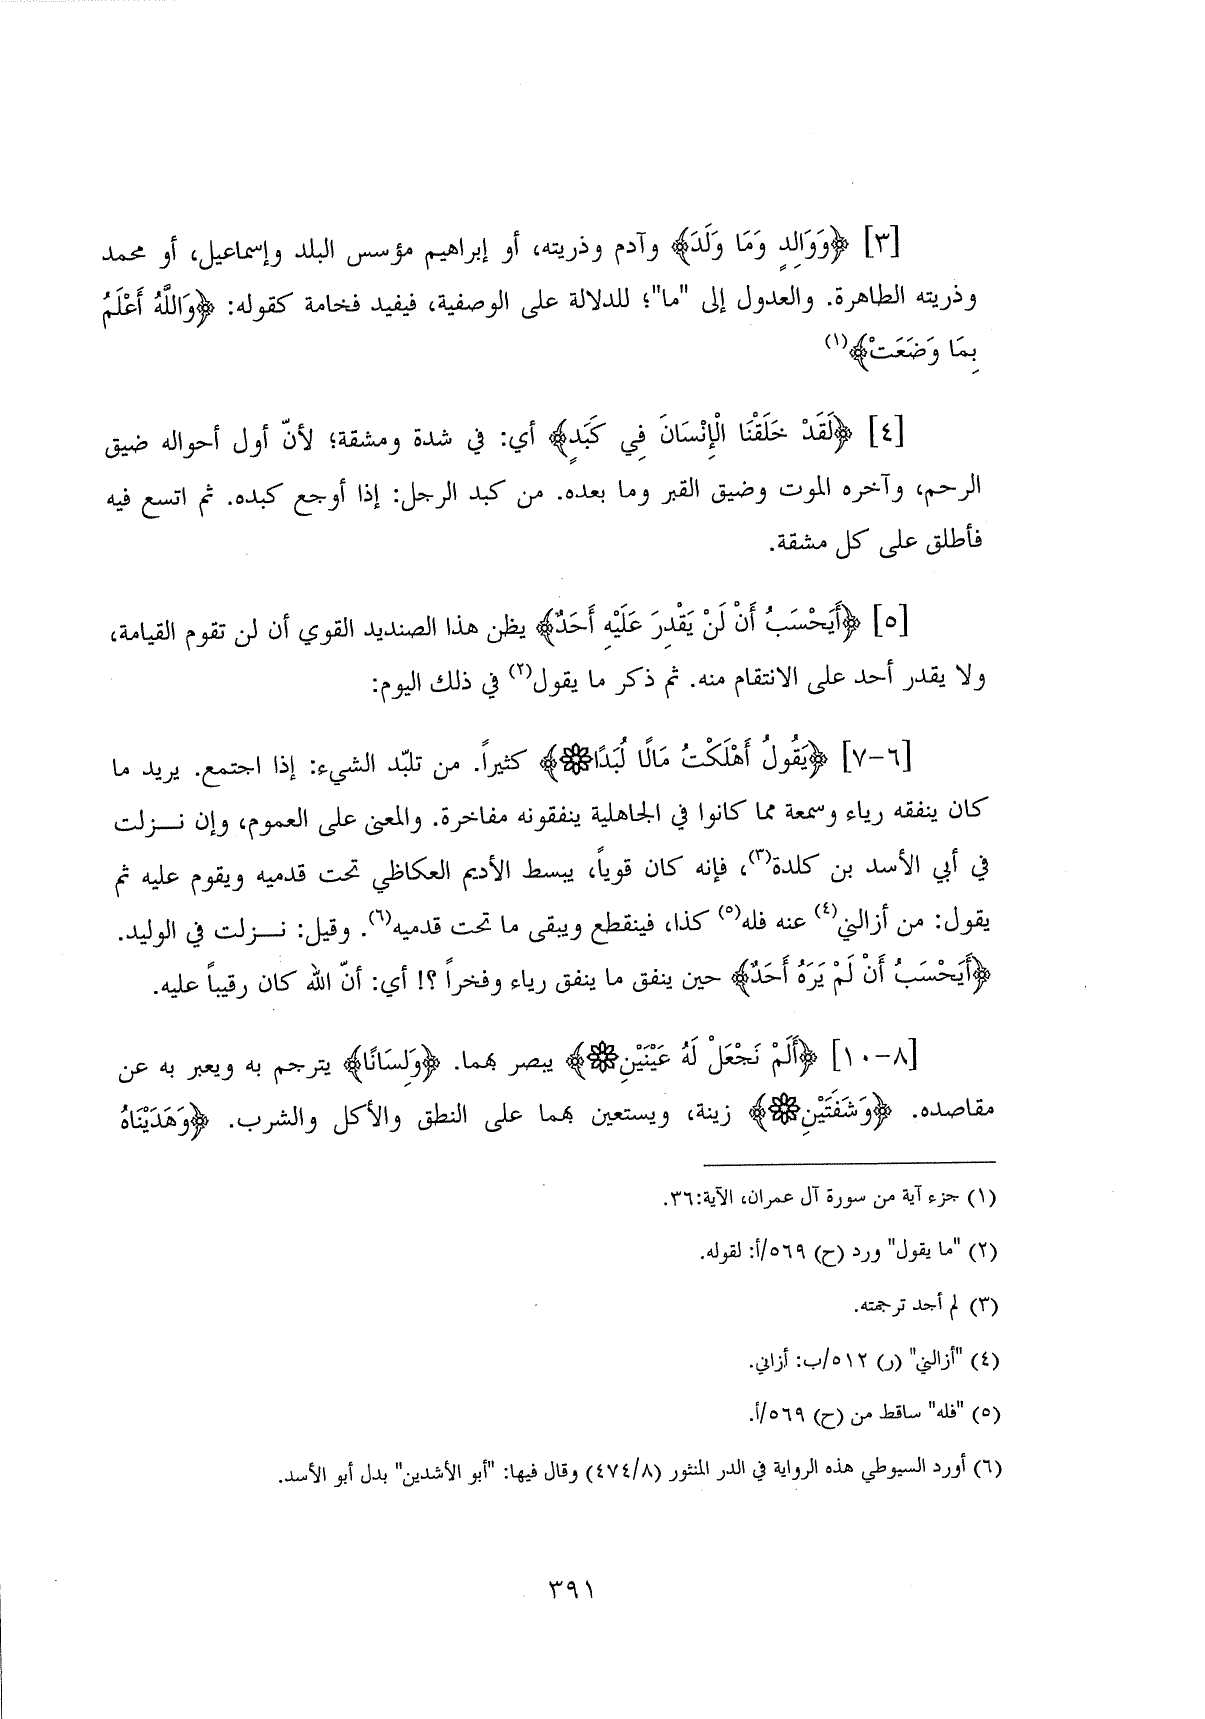 [٣] ﴿وَوَالِدٍ وَمَا وَلَدَ﴾ وآدم وذريته، أو إبراهيم مؤسس البلد وإسماعيل، أو محمد
وذريته الطاهرة. والعدول إلى "ما"؛ للدلالة على الوصفية، فيفيد فخامة كقوله: ﴿وَاللَّهُ أَعْلَمُ
بِمَا وَضَعَتْ﴾(١)
[٤] ﴿لَقَدْ خَلَقْنَا الْإِنْسَانَ فِي كَبَدٍ﴾ أي: في شدة ومشقة؛ لأنّ أول أحواله ضيق
الرحم، وآخره الموت وضيق القبر وما بعده. من كبد الرجل: إذا أوجع كبده. ثم اتسع فيه
فأطلق على كل مشقة.
[٥] ﴿أَيَحْسَبُ أَنْ لَنْ يَقْدِرَ عَلَيْهِ أَحَدٌ﴾ يظن هذا الصنديد القوي أن لن تقوم القيامة،
ولا يقدر أحد على الانتقام منه. ثم ذكر ما يقول(٢) في ذلك اليوم:
[٦-٧] ﴿يَقُولُ أَهْلَكْتُ مَالًا لُبَدًا۞﴾ كثيراً. من تلبّد الشيء: إذا اجتمع. يريد ما
كان ينفقه رياء وسمعة مما كانوا في الجاهلية ينفقونه مفاخرة. والمعنى على العموم، وإن نـــزلت
في أبي الأسد بن كلدة(٣)، فإنه كان قوياً، يبسط الأديم العكاظي تحت قدميه ويقوم عليه ثم
يقول: من أزالني(٤) عنه فله(٥) كذا، فينقطع ويبقى ما تحت قدميه(٦). وقيل: نـــزلت في الوليد.
﴿أَيَحْسَبُ أَنْ لَمْ يَرَهُ أَحَدٌ﴾ حين ينفق ما ينفق رياء وفخراً ؟! أي: أنّ الله كان رقيباً عليه.
[٨-١٠] ﴿أَلَمْ نَجْعَلْ لَهُ عَيْنَيْنِ۞﴾ يبصر بهما. ﴿وَلِسَانًا﴾ يترجم به ويعبر به عن
مقاصده. ﴿وَشَفَتَيْنِ۞﴾ زينة، ويستعين بهما على النطق والأكل والشرب. ﴿وَهَدَيْنَاهُ
(١) جزء آية من سورة آل عمران، الآية:٣٦.
(٢) "ما يقول" ورد (ح) ٥٦٩/أ: لقوله.
(٣) لم أجد ترجمته.
(٤) "أزالني" (ر) ٥١٢/ب: أزاني.
(٥) "فله" ساقط من (ح) ٥٦٩/أ.
(٦) أورد السيوطي هذه الرواية في الدر المنثور (٤٧٤/٨) وقال فيها: "أبو الأشدين" بدل أبو الأسد.
٣٩١